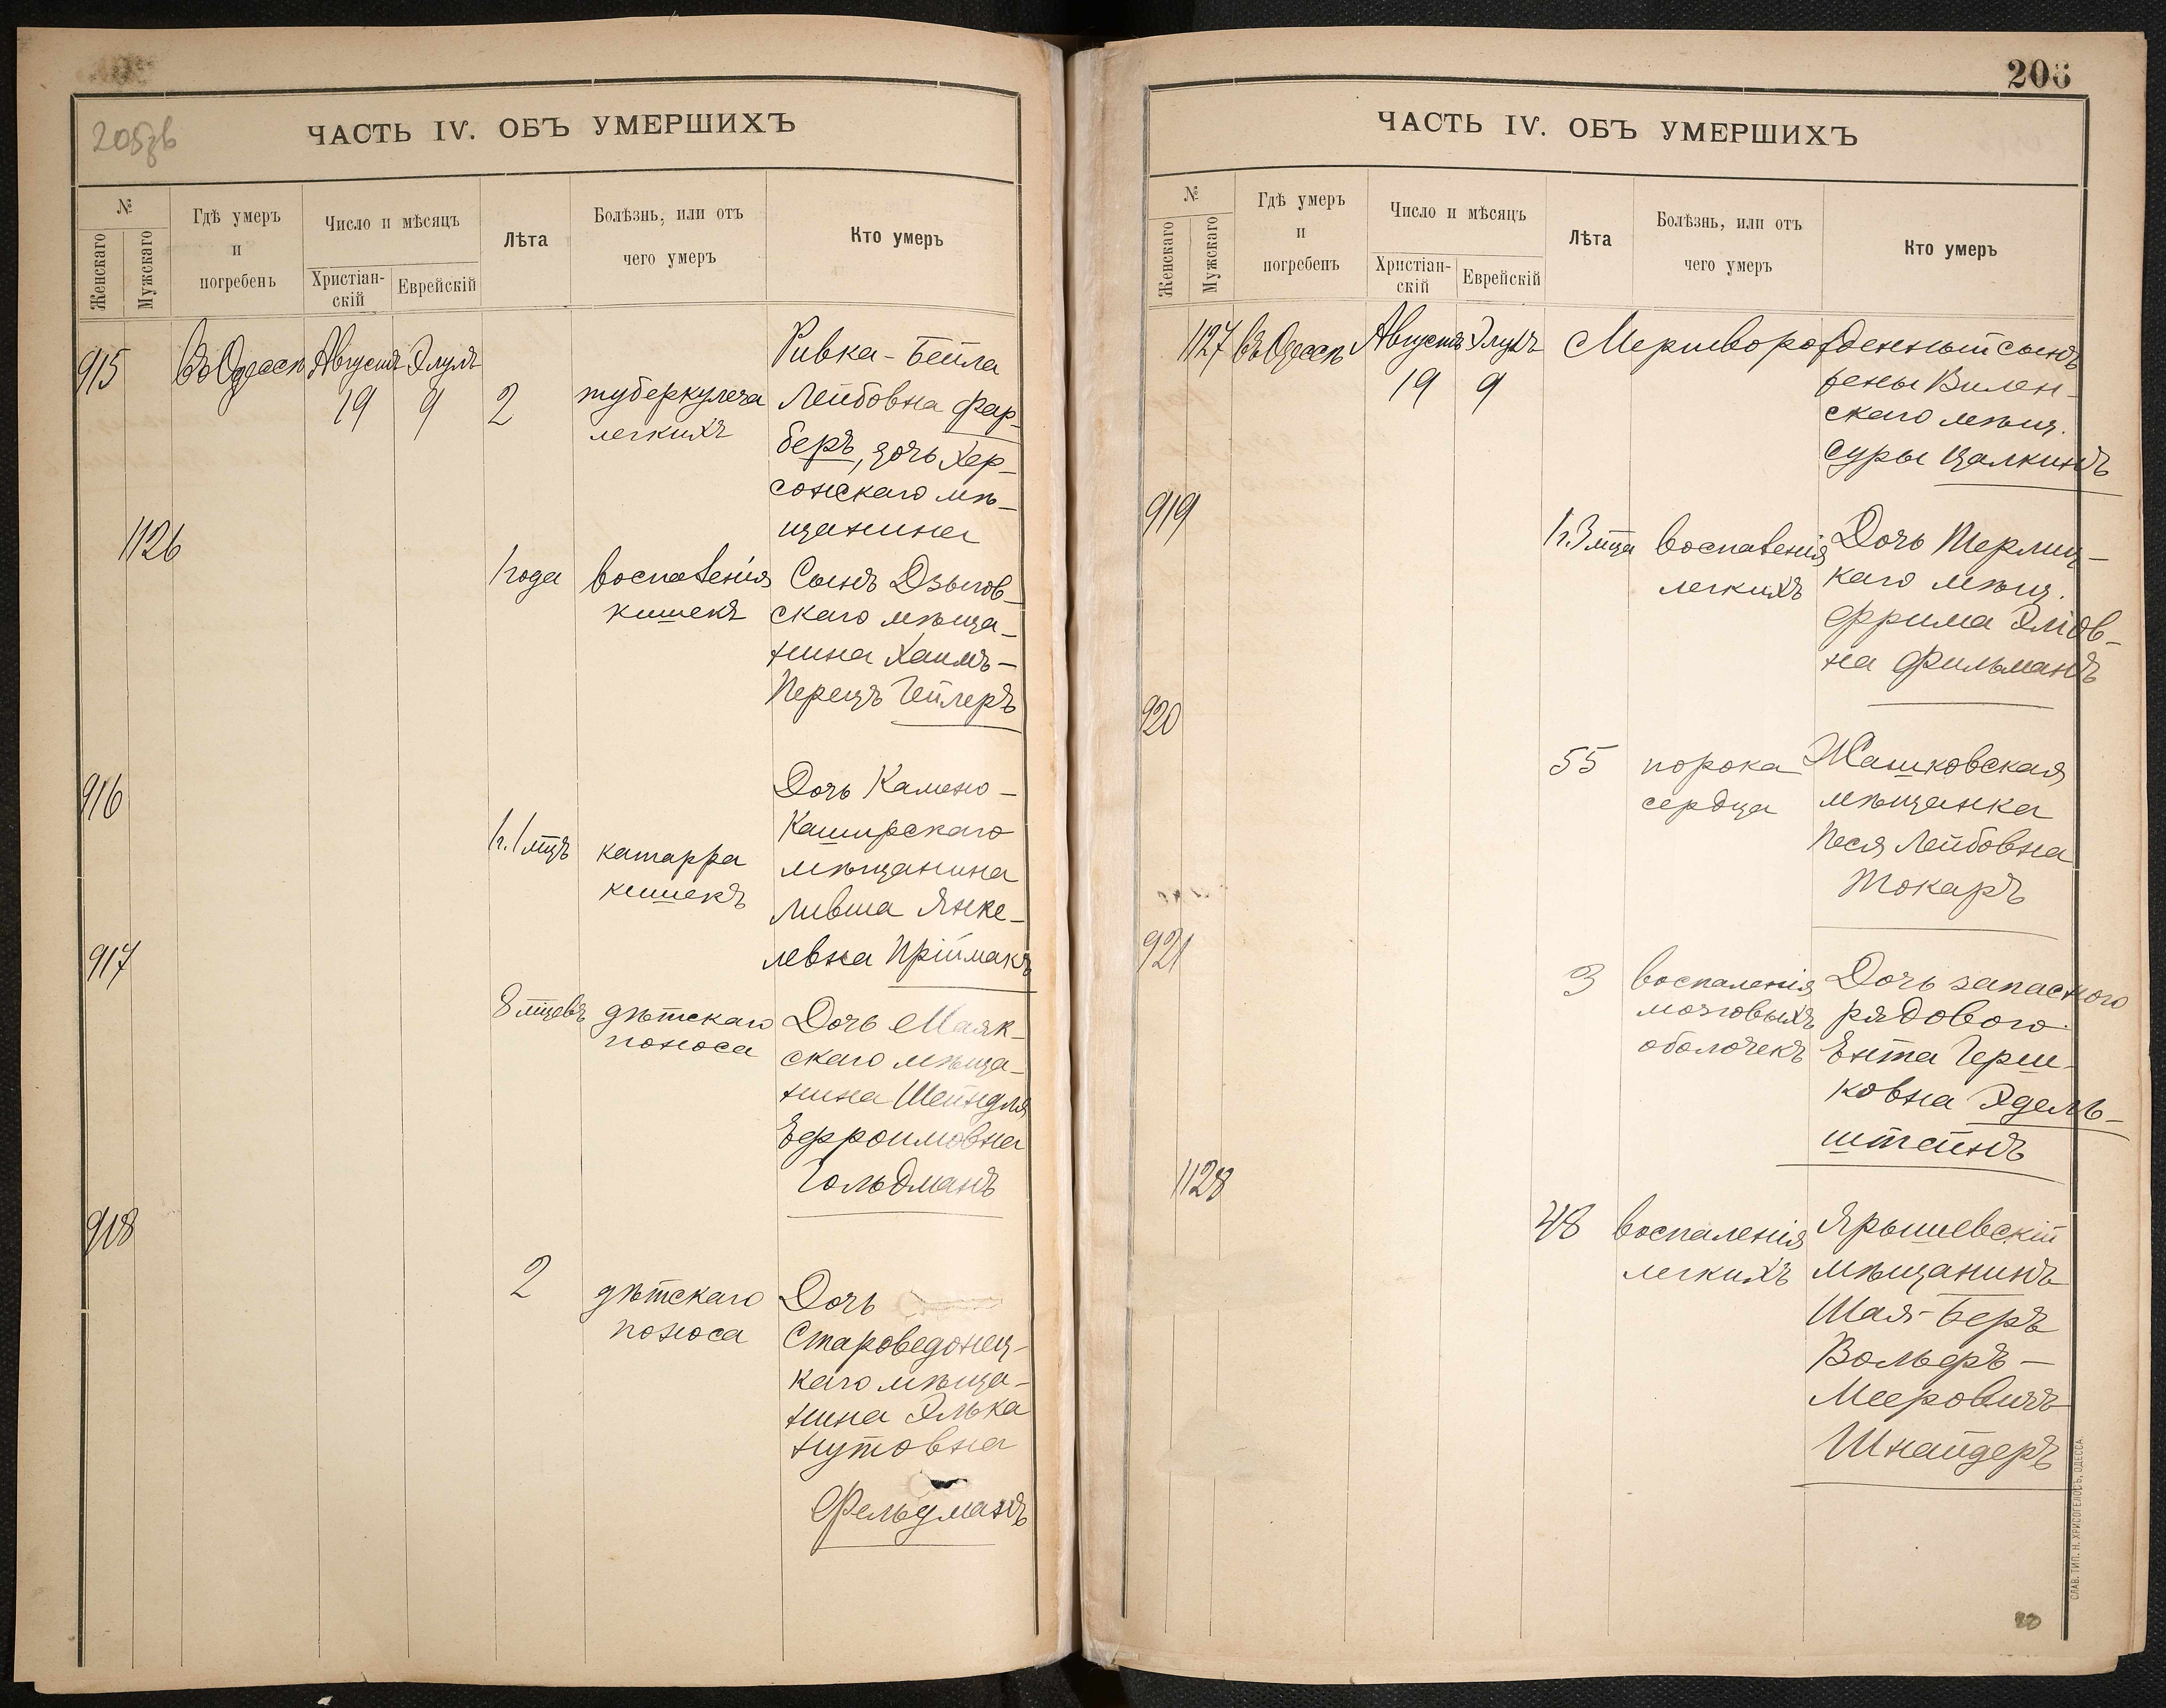 205зв
ЧАСТЬ IV. ОБЪ УМЕРШИХЪ
№
Женскаго
Мужскаго
Гдѣ умеръ
и
погребенъ
Число и мѣсяцъ
Христіан-
скій
Еврейскій
Лѣта
Болѣзнь, или отъ
чего умеръ
Кто умеръ
915
Въ Одессѣ
Августъ
19
Элулъ
9
2
туберкулеза
легкихъ
Ривка-Бейла
Лейбовна Фар-
беръ, дочь Хер-
сонскаго мѣ-
щанина
1126
1 года
воспаленія
кишекъ
Сынъ Дзыгов-
скаго мѣща-
нина Хаимъ-
Перецъ Геллеръ
916
1г. 1 мцъ
катарра
кишекъ
Дочь Камено-
Каширскаго
мѣщанина
Ливша Янке-
левна Пріймакъ
917
8 мцевъ
дѣтскаго
поноса
Дочь Маяк-
скаго мѣща-
нина Шейндля
Ефроимовна
Гольдманъ
918
2
дѣтскаго
поноса
Дочь
каго мѣща-
нина Элька
Нутовна
Фельдманъ
206
ЧАСТЬ IV. ОБЪ УМЕРШИХЪ
№
Женскаго
Мужскаго
Гдѣ умеръ
и
погребенъ
Число и мѣсяцъ
Христіан-
скій
Еврейскій
Лѣта
Болѣзнь, или отъ
чего умеръ
Кто умеръ
1127
Въ Одессѣ
Августъ
19
Элулъ
9
Мертворожденный сынъ
жены Вилен-
скаго мѣщ.
Суры Цалкиндъ
919
1г. 3 мца
воспаленія
легкихъ
Дочь Терлиц-
каго мѣщ.
Фрима Эліов-
на Фильманъ
920
55
порока
сердца
Жашковская
мѣщанка
Песя Лейбовна
Токаръ
921
3
воспаленія
мозговыхъ
оболочекъ
Дочь запасного
рядового
Ента Герш-
ковна Эдель-
штейнъ
1128
48
воспаленія
легкихъ
Ярышевскій
мѣщанинъ
Шая-Беръ
Вольфъ-
Мееровичъ
Шнайдеръ
СЛАВ. ТИП. Н. ХРИСОГЕЛОСЪ, ОДЕССА.